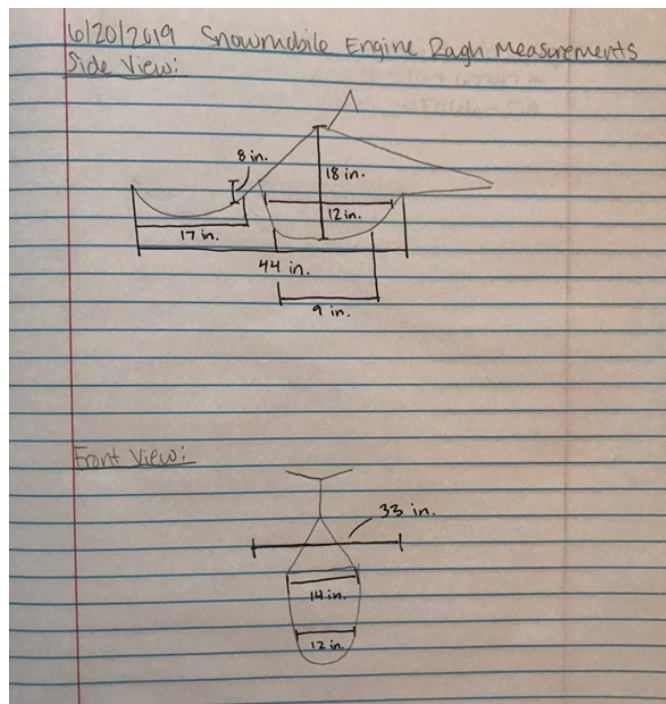 6/20/2019 Snowmobile Engine Rough Measurements
Side View:
8 in.
18 in.
12 in.
17 in.
44 in.
9 in.
Front View:
33 in.
14 in.
12 in.